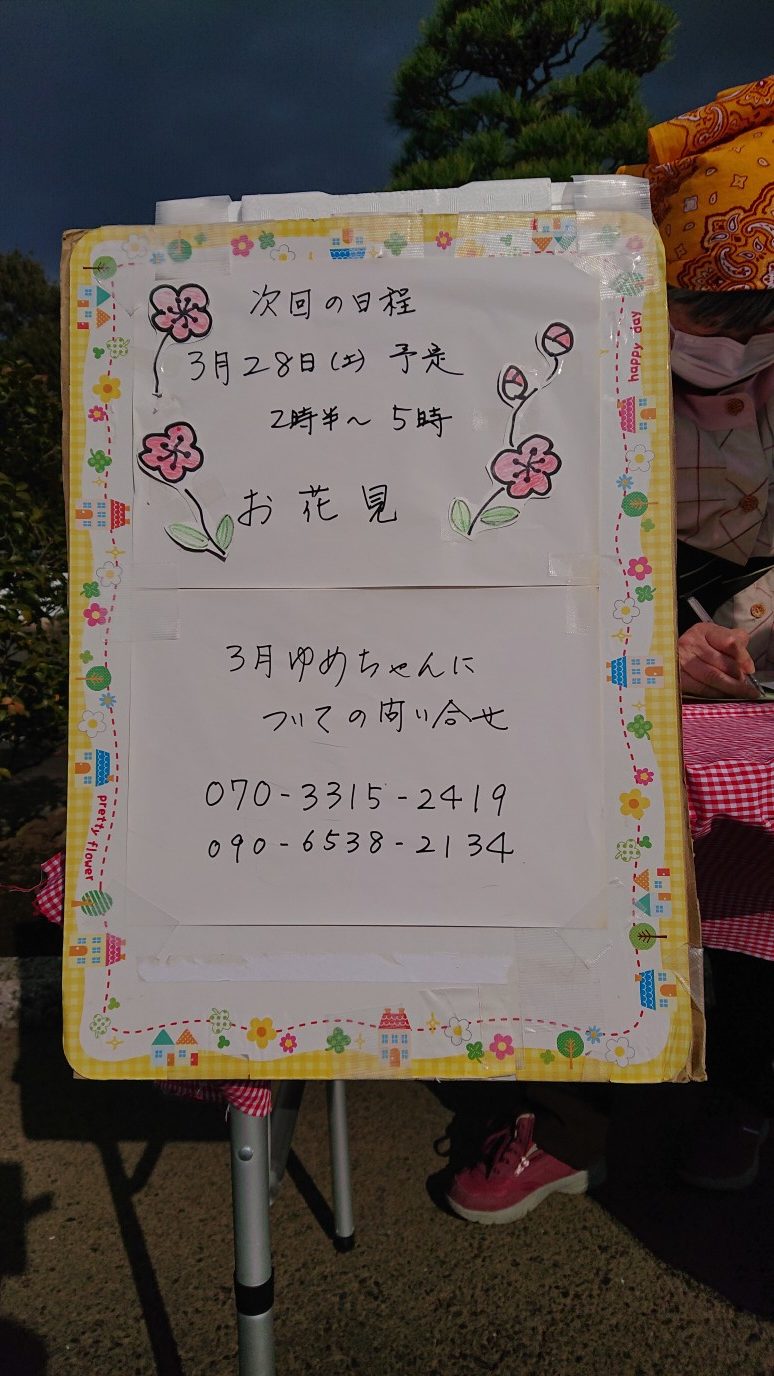 次回の日程
3月28日(土) 予定
2時半〜5時
お花見
3月ゆめちゃんに
ついての問い合せ
070-3315-2419
090-6538-2134
happy day
pretty flower